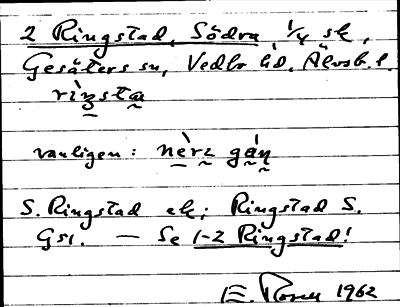 2 Ringstad, Södra, 1/4 sk,
Gesäters sn, Vedbo hd, Älvsb. l.
rìŋsta
vanligen: nè̱rɪ gáŋ
S. Ringstad ek; Ringstad S.
Gsr. — Se 1-2 Ringstad!
E. Rosen 1962